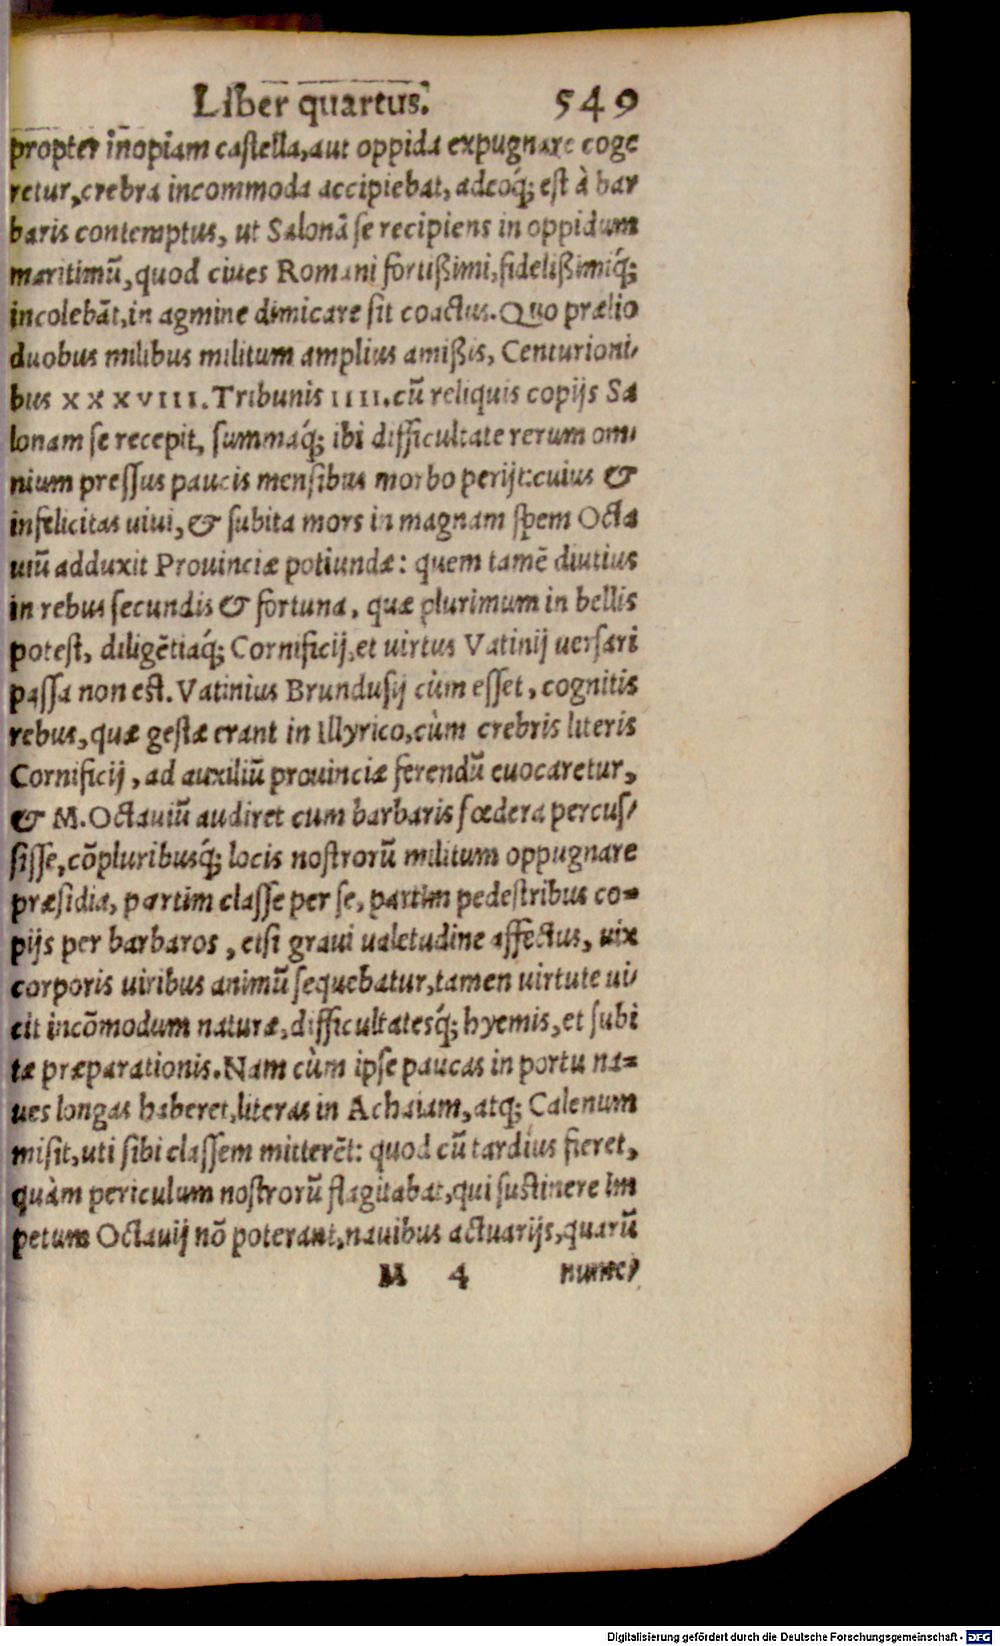 Liber quartus. 549
propter inopiam castella, aut oppida expugnare coge
retur, crebra incommoda accipiebat, adeoq́; est à bar
baris contemptus, ut Salonā se recipiens in oppidum
maritimū, quod ciues Romani fortißimi, fidelißimiq́;
incolebāt, in agmine dimicare sit coactus. Quo prælio
duobus milibus militum amplius amißis, Centurioni⸗
bus XXXVIII. Tribunis IIII. cū reliquis copijs Sa
lonam se recepit, summaq́; ibi difficultate rerum om⸗
nium pressus paucis mensibus morbo perijt: cuius &
infelicitas uiui, & subita mors in magnam spem Octa
uiū adduxit Prouinciæ potiundæ: quem tamē diutius
in rebus secundis & fortuna, quæ plurimum in bellis
potest, diligētiaq́; Cornificij, et uirtus Vatinij uersari
passa non est. Vatinius Brundusij cùm esset, cognitis
rebus, quæ gestæ erant in Illyrico, cùm crebris literis
Cornificij, ad auxiliū prouinciæ ferendū euocaretur,
& M. Octauiū audiret cum barbaris fœdera percus⸗
sisse, cōpluribusq́; locis nostrorū militum oppugnare
præsidia, partim classe per se, partim pedestribus co⸗
pijs per barbaros, etsi graui ualetudine affectus, uix
corporis uiribus animū sequebatur, tamen uirtute ui⸗
cit incōmodum naturæ, difficultatesq́; hyemis, et subi
tæ præparationis. Nam cùm ipse paucas in portu na⸗
ues longas haberet, literas in Achaiam, atq; Calenum
misit, uti sibi classem mitterēt: quod cū tardius fieret,
quàm periculum nostrorū flagitabat, qui sustinere im
petum Octauij nō poterant, nauibus actuarijs, quarū
M 4 nume⸗
Digitalisierung gefördert durch die Deutsche Forschungsgemeinschaft - DFG